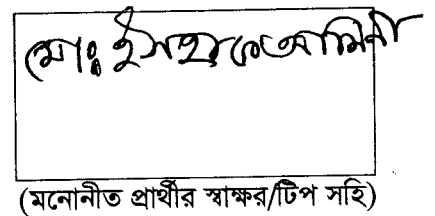 মোঃ ইসহাক আমিনী
(মনোনীত প্রার্থীর স্বাক্ষর/টিপ সহি)